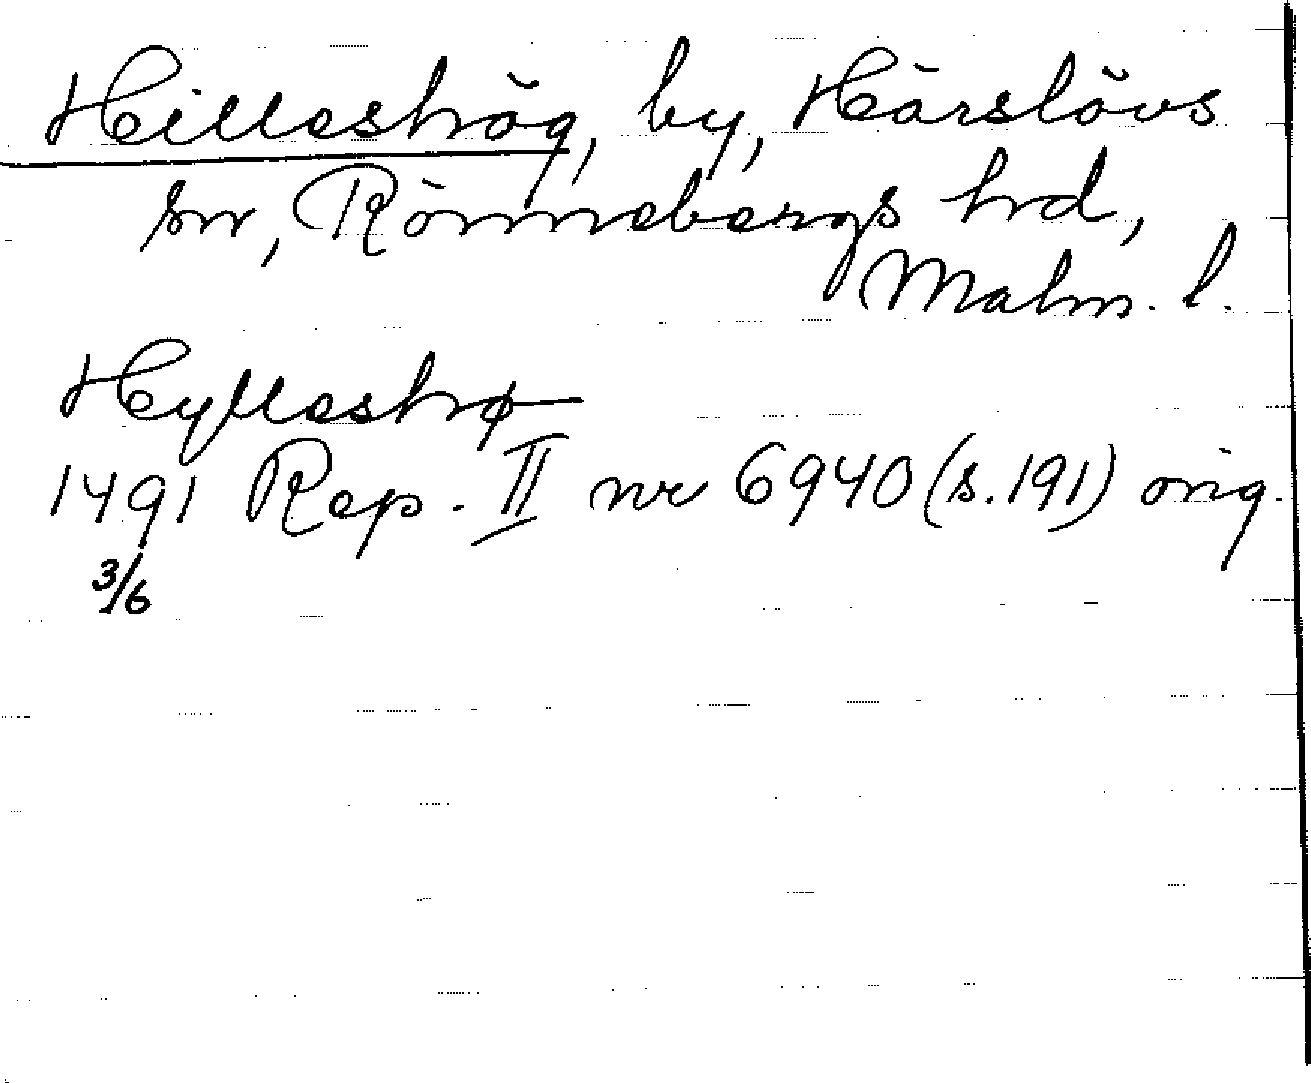 Hilleshög, by, Härslövs
sn, Rönnebergs hd,
Malm. l.
Hylleshø
1491 Rep. II nr 6940 (s. 191) orig.
3/6